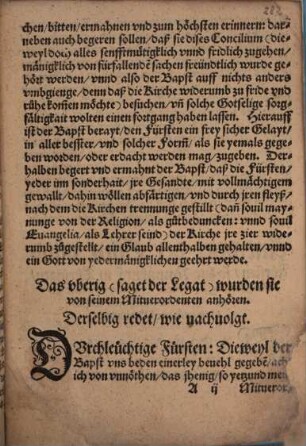 chen/bitten/ermahnen vnd zum höchsten erinnern: dar-
neben auch begeren sollen/daß sie dises Concilium (die-
weyl doch alles senfftmütigklich vnnd fridlich zugehen/
mänigklich von fürfallender sachen freündtlich wurde ge-
hört werden/vnnd also der Bapst auff nichts anders
vmbgienge/denn daß die Kirche widerumb zu fride vnd
rühe kom̃en möchte) besuchen/vn̄ solche Gotselige sorg-
fältigkait wolten einen fortgang haben lassen. Hierauff
ist der Bapst berayt/den Fürsten ein frey sicher Gelayt/
in aller bester/vnd solcher Form̃/als sie yemals gege-
ben worden/oder erdacht werden mag/zugeben. Der-
halben begert vnd ermahnt der Bapst/daß die Fürsten/
yeder im sonderhait/jre Gesandte/mit vollmächtigem
gewallt/dahin wöllen abfärtigen/vnd durch jren fleyß/
nach dem die Kirchen trennunge gestillt (dan̄ souil may-
nunge von der Religion/als gütbeduncken: vnnd souil
Euangelia/als Lehrer seind) der Kirche jre zier wide-
rumb zůgestellt/ein Glaub allenthalben gehalten/vnnd
ein Gott von yedermänigklichen geehrt werde.
Das vberig (saget der Legat) wurden sie
von seinem Mituerordenten anhören.
Derselbig redet/wie nachuolgt.
DVrchleüchtige Fürsten: Dieweyl der
Bapst vns beden einerley beuehl gegebē/ach
ich von vnnöthen/das jhenig/so yetzund mei
A ij Mitueror-